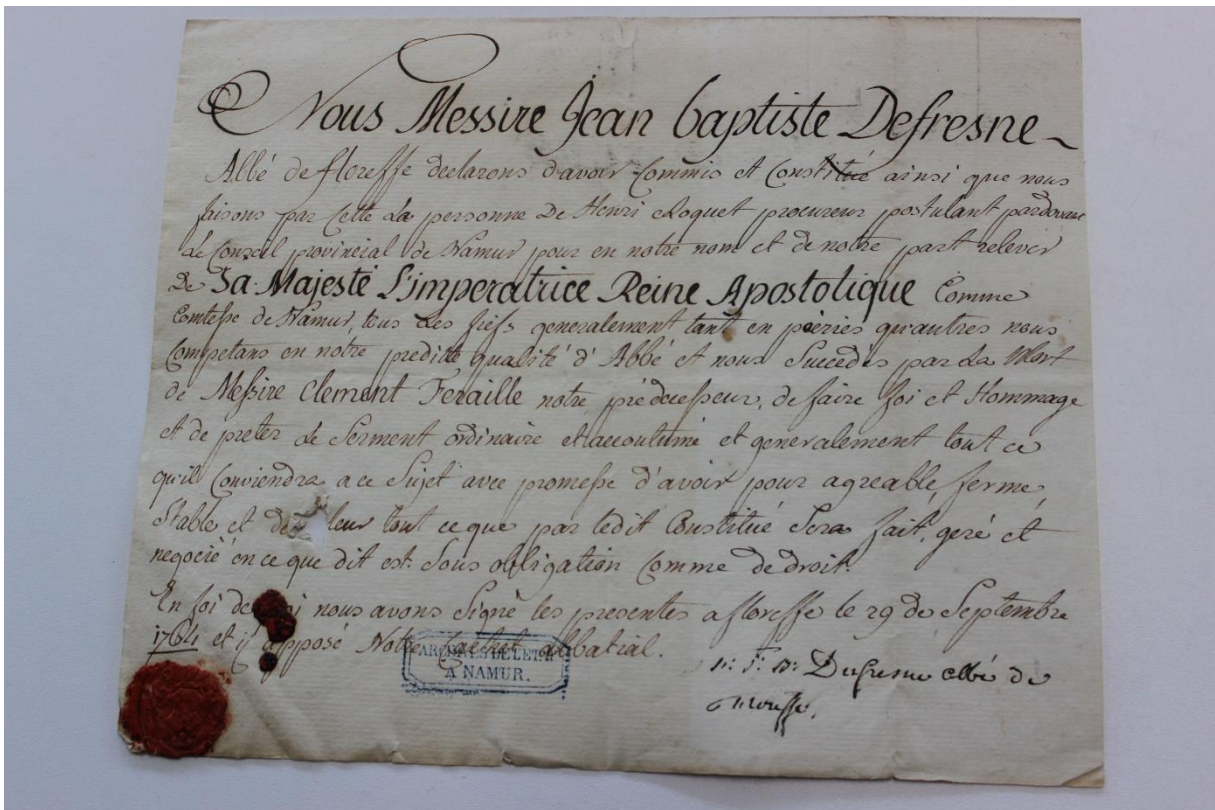 Nous Messire Jean baptiste Defresne
Abbé de floreffe declarons d'avoir Commis et Constitué ainsi que nous
faisons par Cette La personne De Henri Roquet procureur postulant pardevant
Le Conseil provincial de Namur pour en notre nom et de notre part relever
De Sa Majesté L'imperatrice Reine Apostolique Comme
Comtesse de Namur, tous Les fiefs generalement tant en pairies qu'autres nous
Competans en notre preditte qualité d'Abbé et nous Succedés par La Mort
de Messire Clement Feraille notre prédecesseur, de faire foi et Hommage
et de preter Le Serment ordinaire et accoutumé et generalement tout ce
qu'il Conviendra a ce Sujet avec promesse d'avoir pour agreable, ferme,
Stable et de leur tout ce que par ledit Constitué Sera fait, geré et
negocié en ce que dit est. Sous obligation Comme de droit.
En foi de nous avons Signé les presentes a floreffe le 29 de Septembre
1764 et y apposé Notre Cachet Abbatial.
ARCHIVES DE L'ETAT
A NAMUR.
Dufresne abbé de
floreffe.